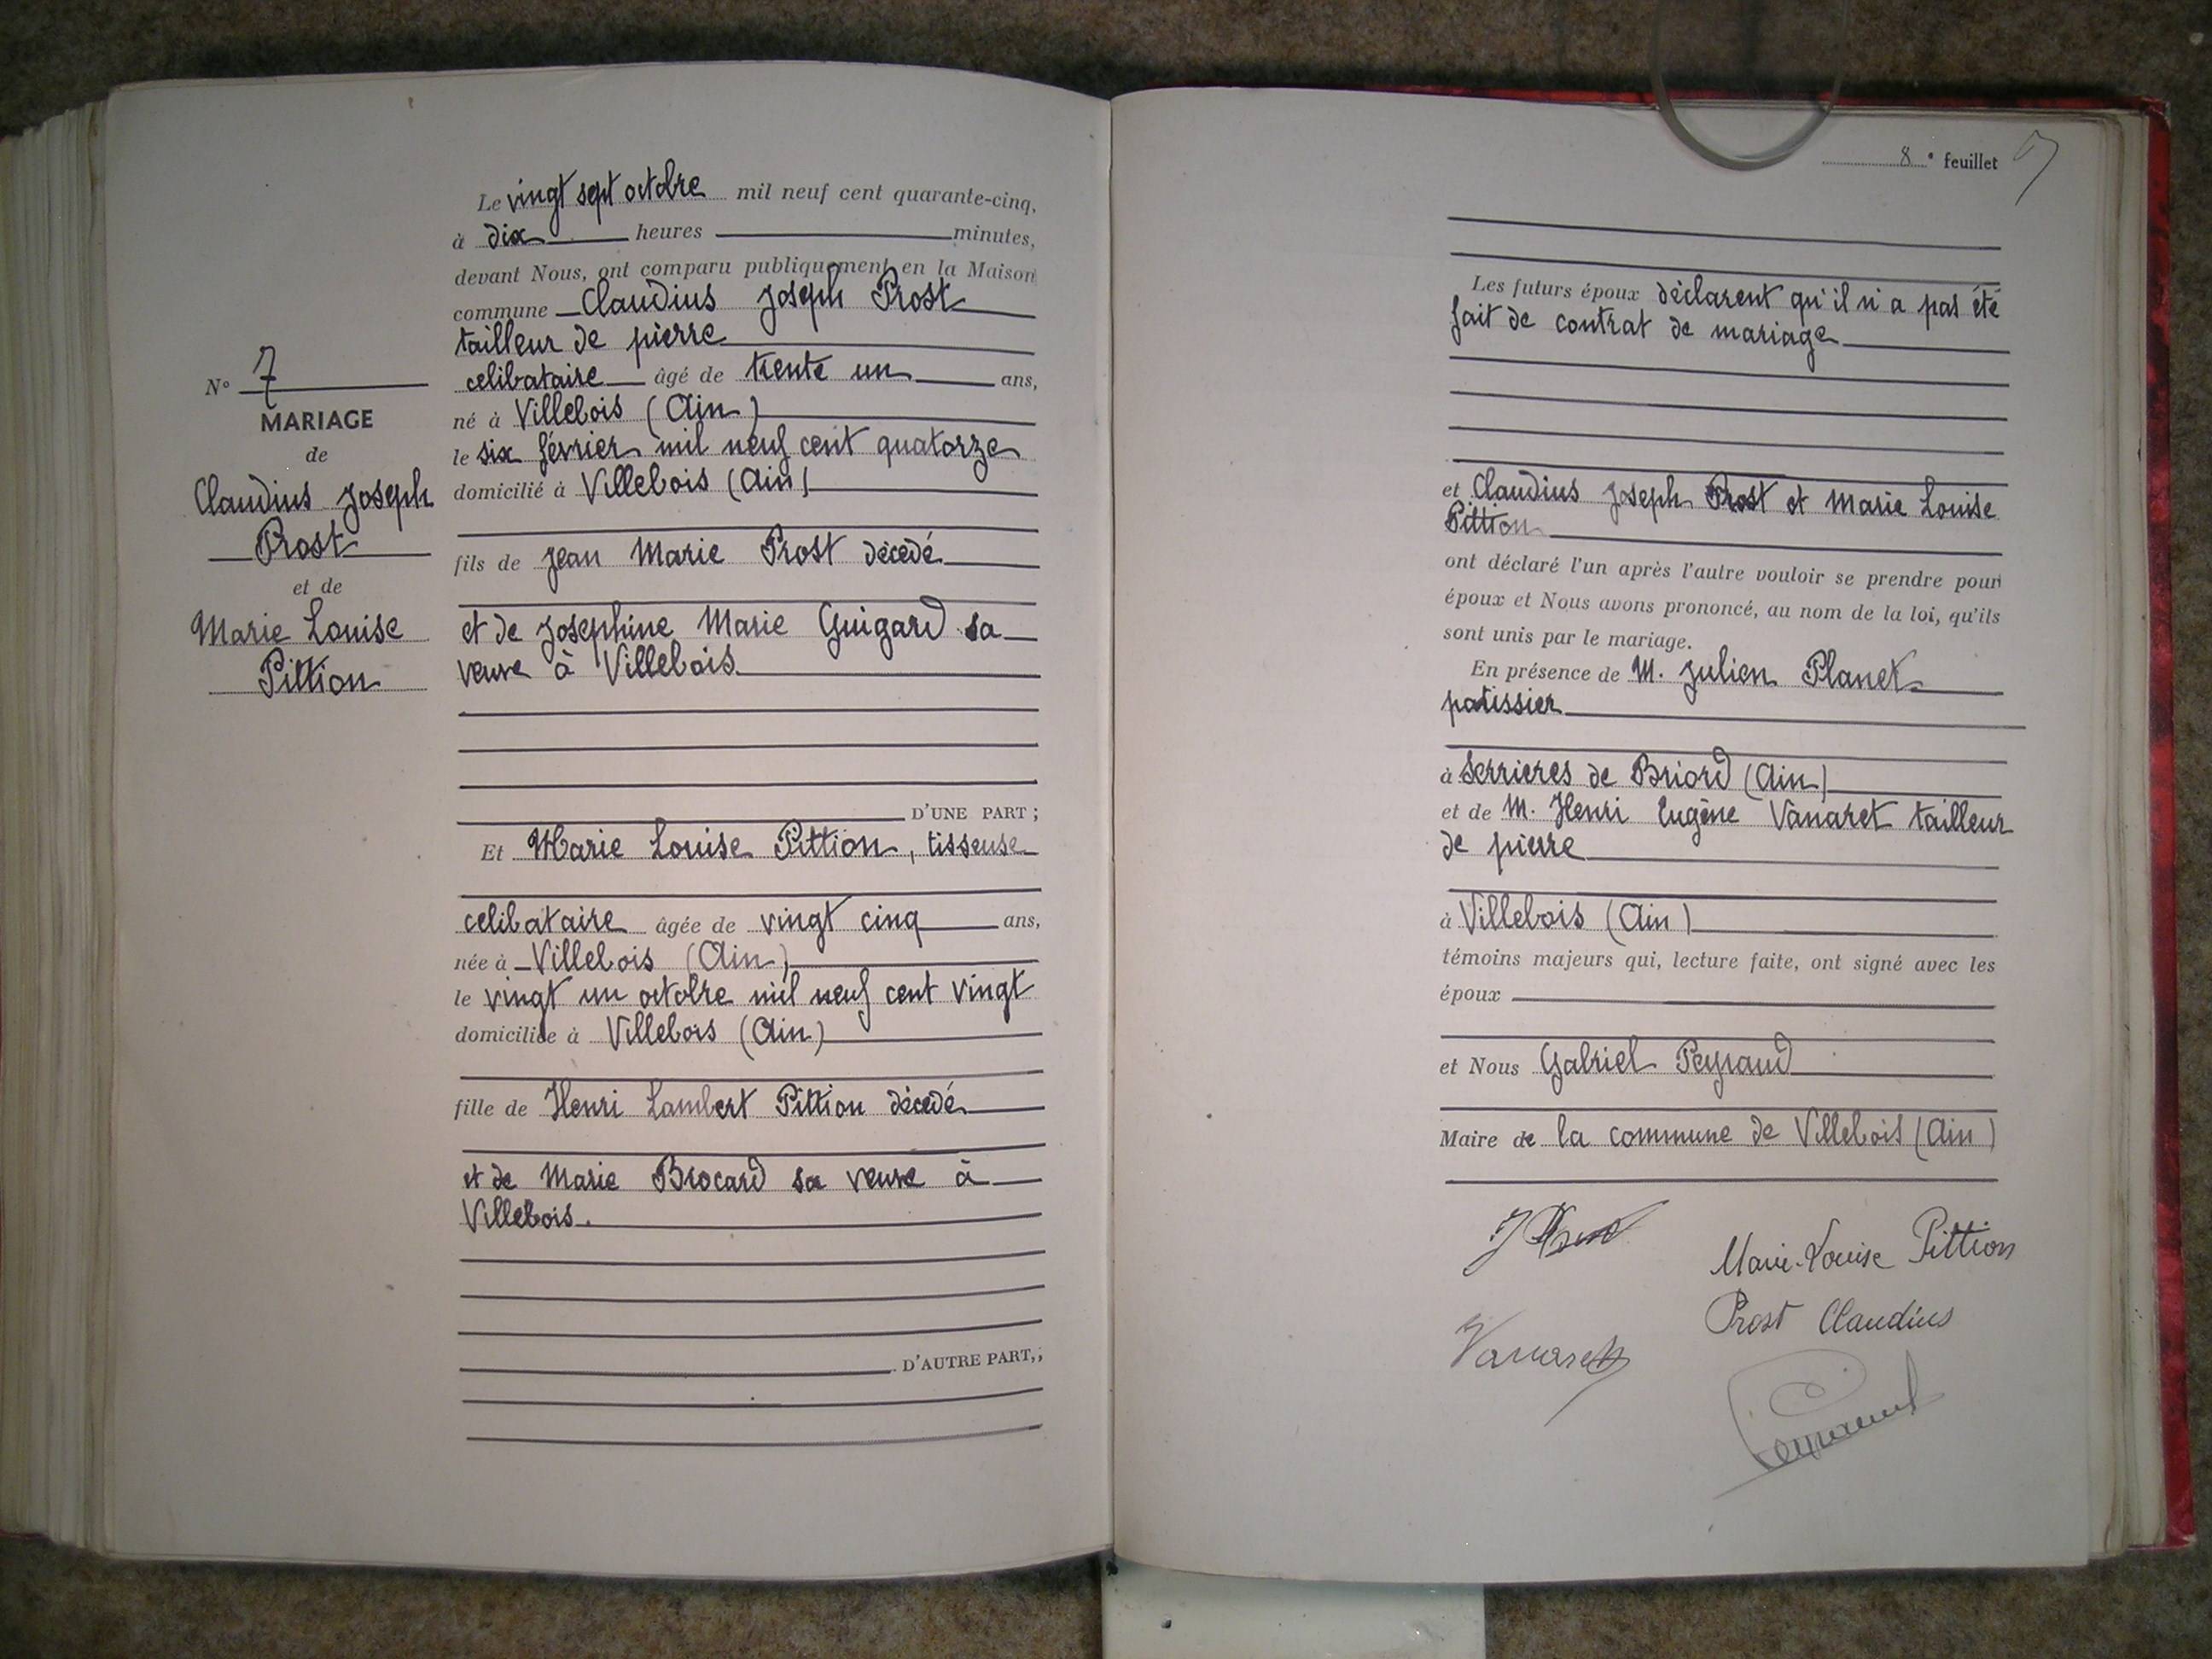 N° 7
MARIAGE
de
Claudius Joseph
Prost
et de
Marie Louise
Pittion
Le vingt sept octobre mil neuf cent quarante-cinq,
à dix heures minutes,
devant Nous, ont comparu publiquement en la Maison
commune Claudius Joseph Prost
tailleur de pierre
celibataire âgé de trente un ans,
né à Villebois (Ain)
le six février mil neuf cent quatorze
domicilié à Villebois (Ain)
fils de Jean Marie Prost décédé
et de Josephine Marie Guigard sa
veuve à Villebois
D'UNE PART ;
Et Marie Louise Pittion, tisseuse
celibataire âgée de vingt cinq ans,
née à Villebois (Ain)
le vingt un octobre mil neuf cent vingt
domiciliée à Villebois (Ain)
fille de Henri Lambert Pittion décédé
et de Marie Brocard sa veuve à
Villebois.
D'AUTRE PART,;
8e feuillet
Les futurs époux déclarent qu'il n'a pas été
fait de contrat de mariage
et Claudius Joseph Prost et Marie Louise
Pittion
ont déclaré l'un après l'autre vouloir se prendre pour
époux et Nous avons prononcé, au nom de la loi, qu'ils
sont unis par le mariage.
En présence de M. Julien Planet
patissier
à Serrieres de Briord (Ain)
et de M. Henri Eugène Vanaret tailleur
de pierre
à Villebois (Ain)
témoins majeurs qui, lecture faite, ont signé avec les
époux
et Nous Gabriel Peyraud
Maire de la commune de Villebois (Ain)
Marie-Louise Pittion
Prost Claudius
Vanaret
Peyraud